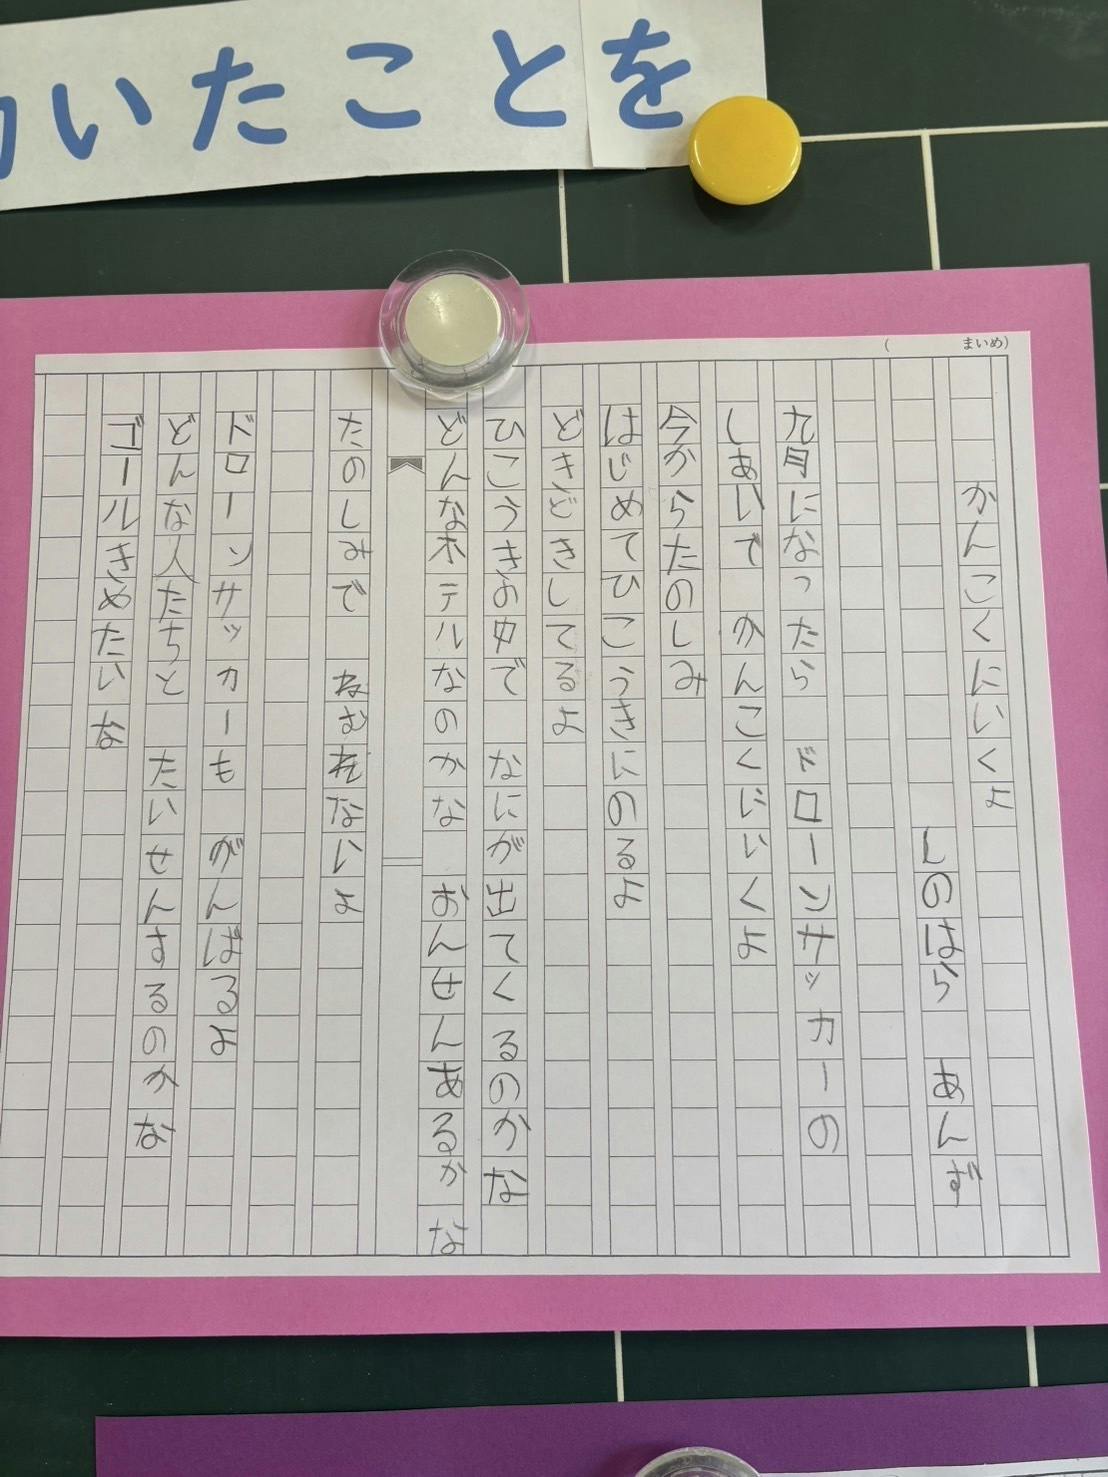 いたことを
(　　まいめ)
かんこくにいくよ
しのはら　あんず
九月になったら　ドローンサッカーの
しあいで　かんこくにいくよ
今からたのしみ
はじめてひこうきにのるよ
どきどきしてるよ
ひこうきの中で　なにが出てくるのかな
どんなホテルなのかな　おんせんあるかな
たのしみで　ねむれないよ
ドローンサッカーも　がんばるよ
どんな人たちと　たいせんするのかな
ゴールきめたいな